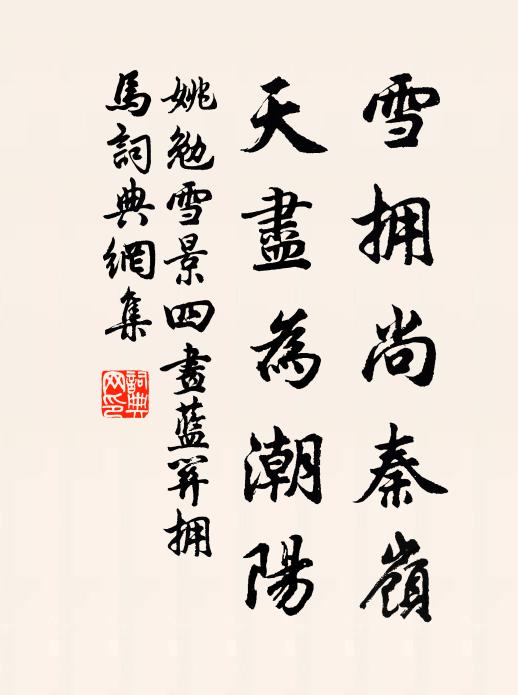 雪拥尚秦嶺
天盡為潮陽
姚勉雪景四畫藍关拥
馬詞典網集
詞典
网印